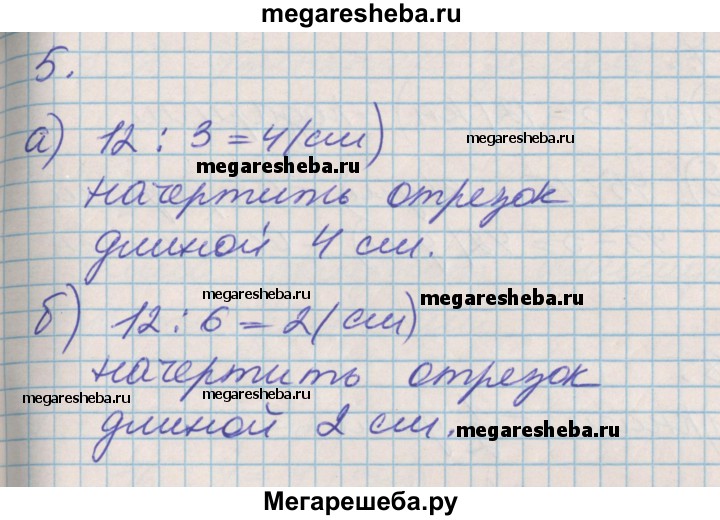 megaresheba.ru
5.
а) 12 : 3 = 4 (см)
megaresheba.ru
megaresheba.ru
начертить отрезок
длиной 4 см.
megaresheba.ru
megaresheba.ru
б) 12 : 6 = 2 (см)
начертить отрезок
megaresheba.ru
megaresheba.ru
длиной 2 см.
megaresheba.ru
Мегарешеба.ру